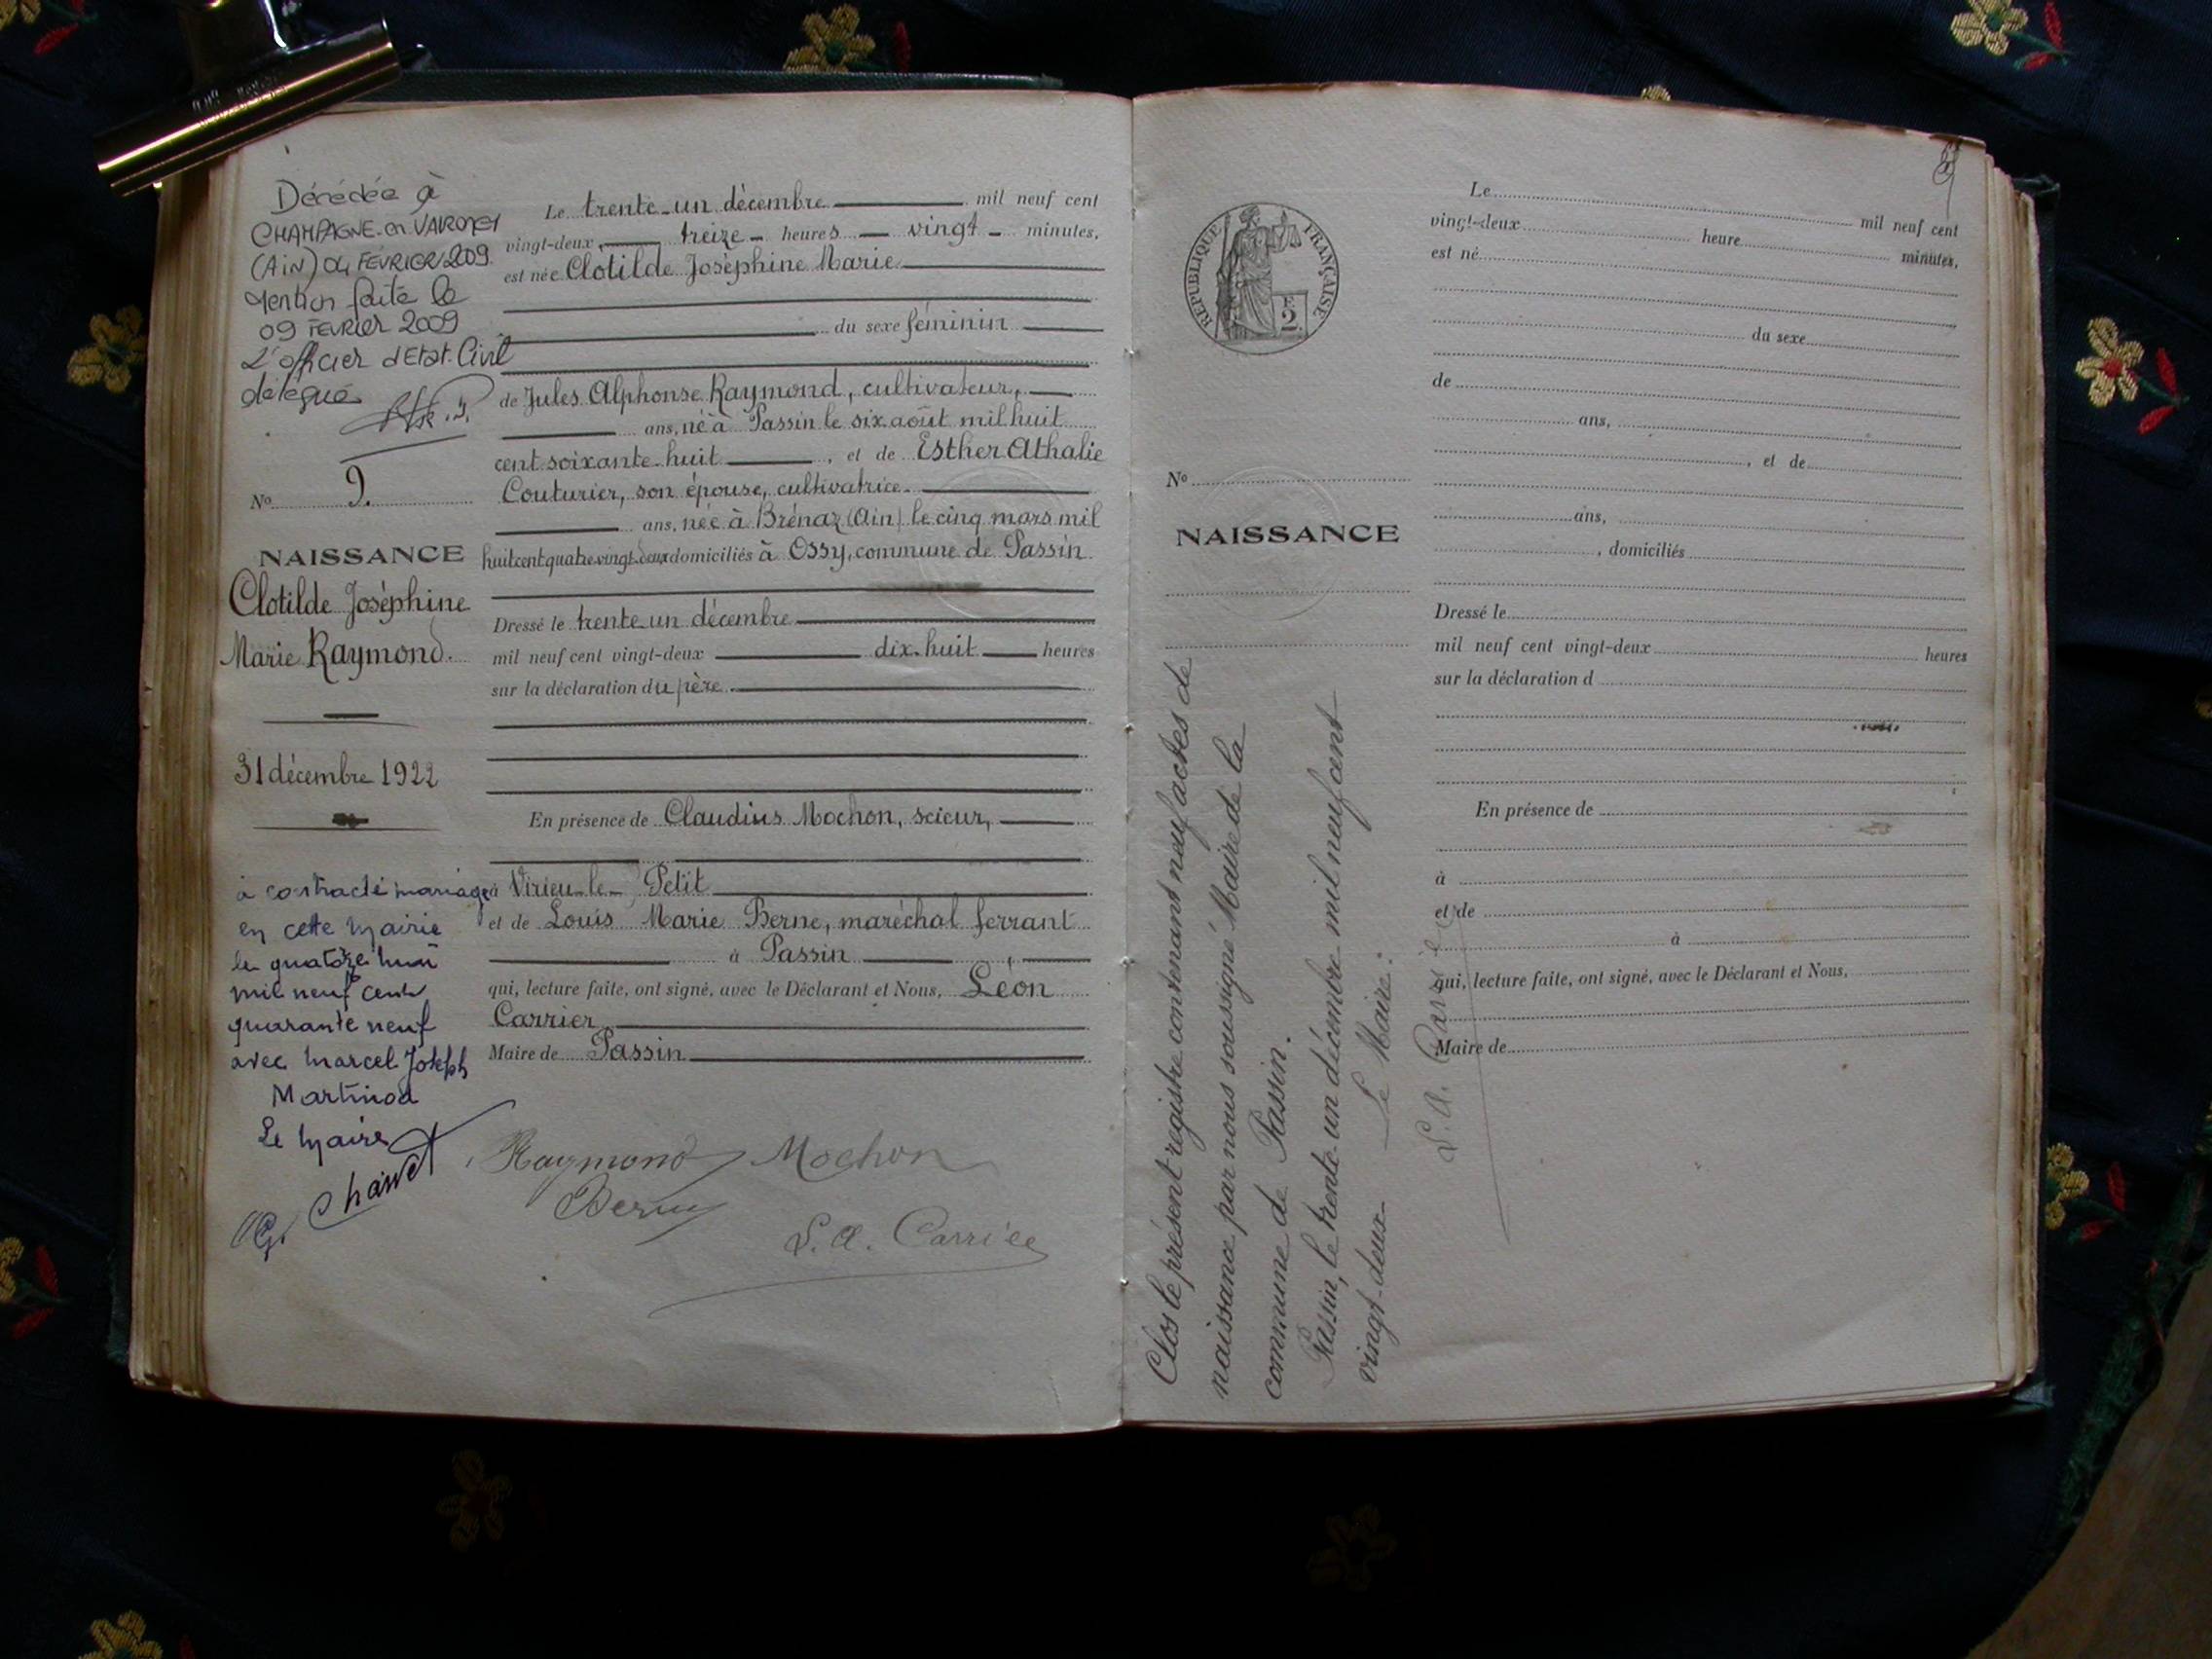 Décédée à
CHAMPAGNE-en-VALROMEY
(AiN) 04 FÉVRIER 209.
Mention faite le
09 FEVRIER 2009
L'officier d'Etat-Civil
délégué
No 9.
NAISSANCE
Clotilde Joséphine
Marie Raymond.
31 décembre 1922
a contracté mariage
en cette mairie
le quatorze
mil neuf cent
quarante neuf
avec Marcel Joseph
Martinod
Le Maire
Le trente-un décembre mil neuf cent
vingt-deux, treize heures vingt minutes,
est née Clotilde Joséphine Marie
du sexe féminin
de Jules Alphonse Raymond, cultivateur,
ans, né à Passin le six août mil huit
cent soixante-huit, et de Esther Athalie
Couturier, son épouse, cultivatrice
ans, née à Brénaz (Ain) le cinq mars mil
huit cent quatre vingt-deux domiciliés à Ossy, commune de Passin
Dressé le trente un décembre
mil neuf cent vingt-deux dix-huit heures
sur la déclaration du père
En présence de Claudius Mochon, scieur,
à Virieu-le-Petit
et de Louis Marie Berne, maréchal ferrant
à Passin,
qui, lecture faite, ont signé, avec le Déclarant et Nous, Léon
Carrier
Maire de Passin
Raymond Mochon
Berne
L. A. Carrier
RÉPUBLIQUE FRANÇAISE
2
No
NAISSANCE
Clos le présent registre contenant neuf actes de
naissance par nous soussigné Maire de la
commune de Passin.
Passin, le trente-un décembre mil neuf cent
vingt-deux. Le Maire:
L. A. Carrier
Le mil neuf cent
vingt-deux heure minutes,
est né
du sexe
de
ans,
, et de
ans,
, domiciliés
Dressé le
mil neuf cent vingt-deux heures
sur la déclaration d
En présence de
à
et de
à
qui, lecture faite, ont signé, avec le Déclarant et Nous,
Maire de